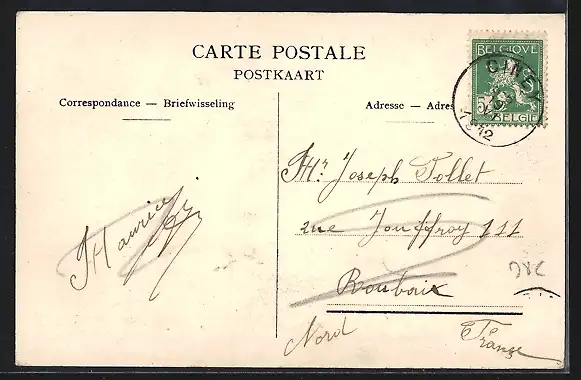 CARTE POSTALE
POSTKAART
Correspondance — Briefwisseling
Adresse — Adres
BELGIQVE
CINEY
5
1912
BELGIE
Mr Joseph Pollet
rue Jouffroy 111
Roubaix
Nord
France
Maurice